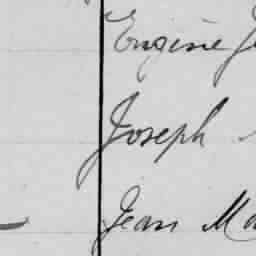 Eugène
Joseph
Jean Ma